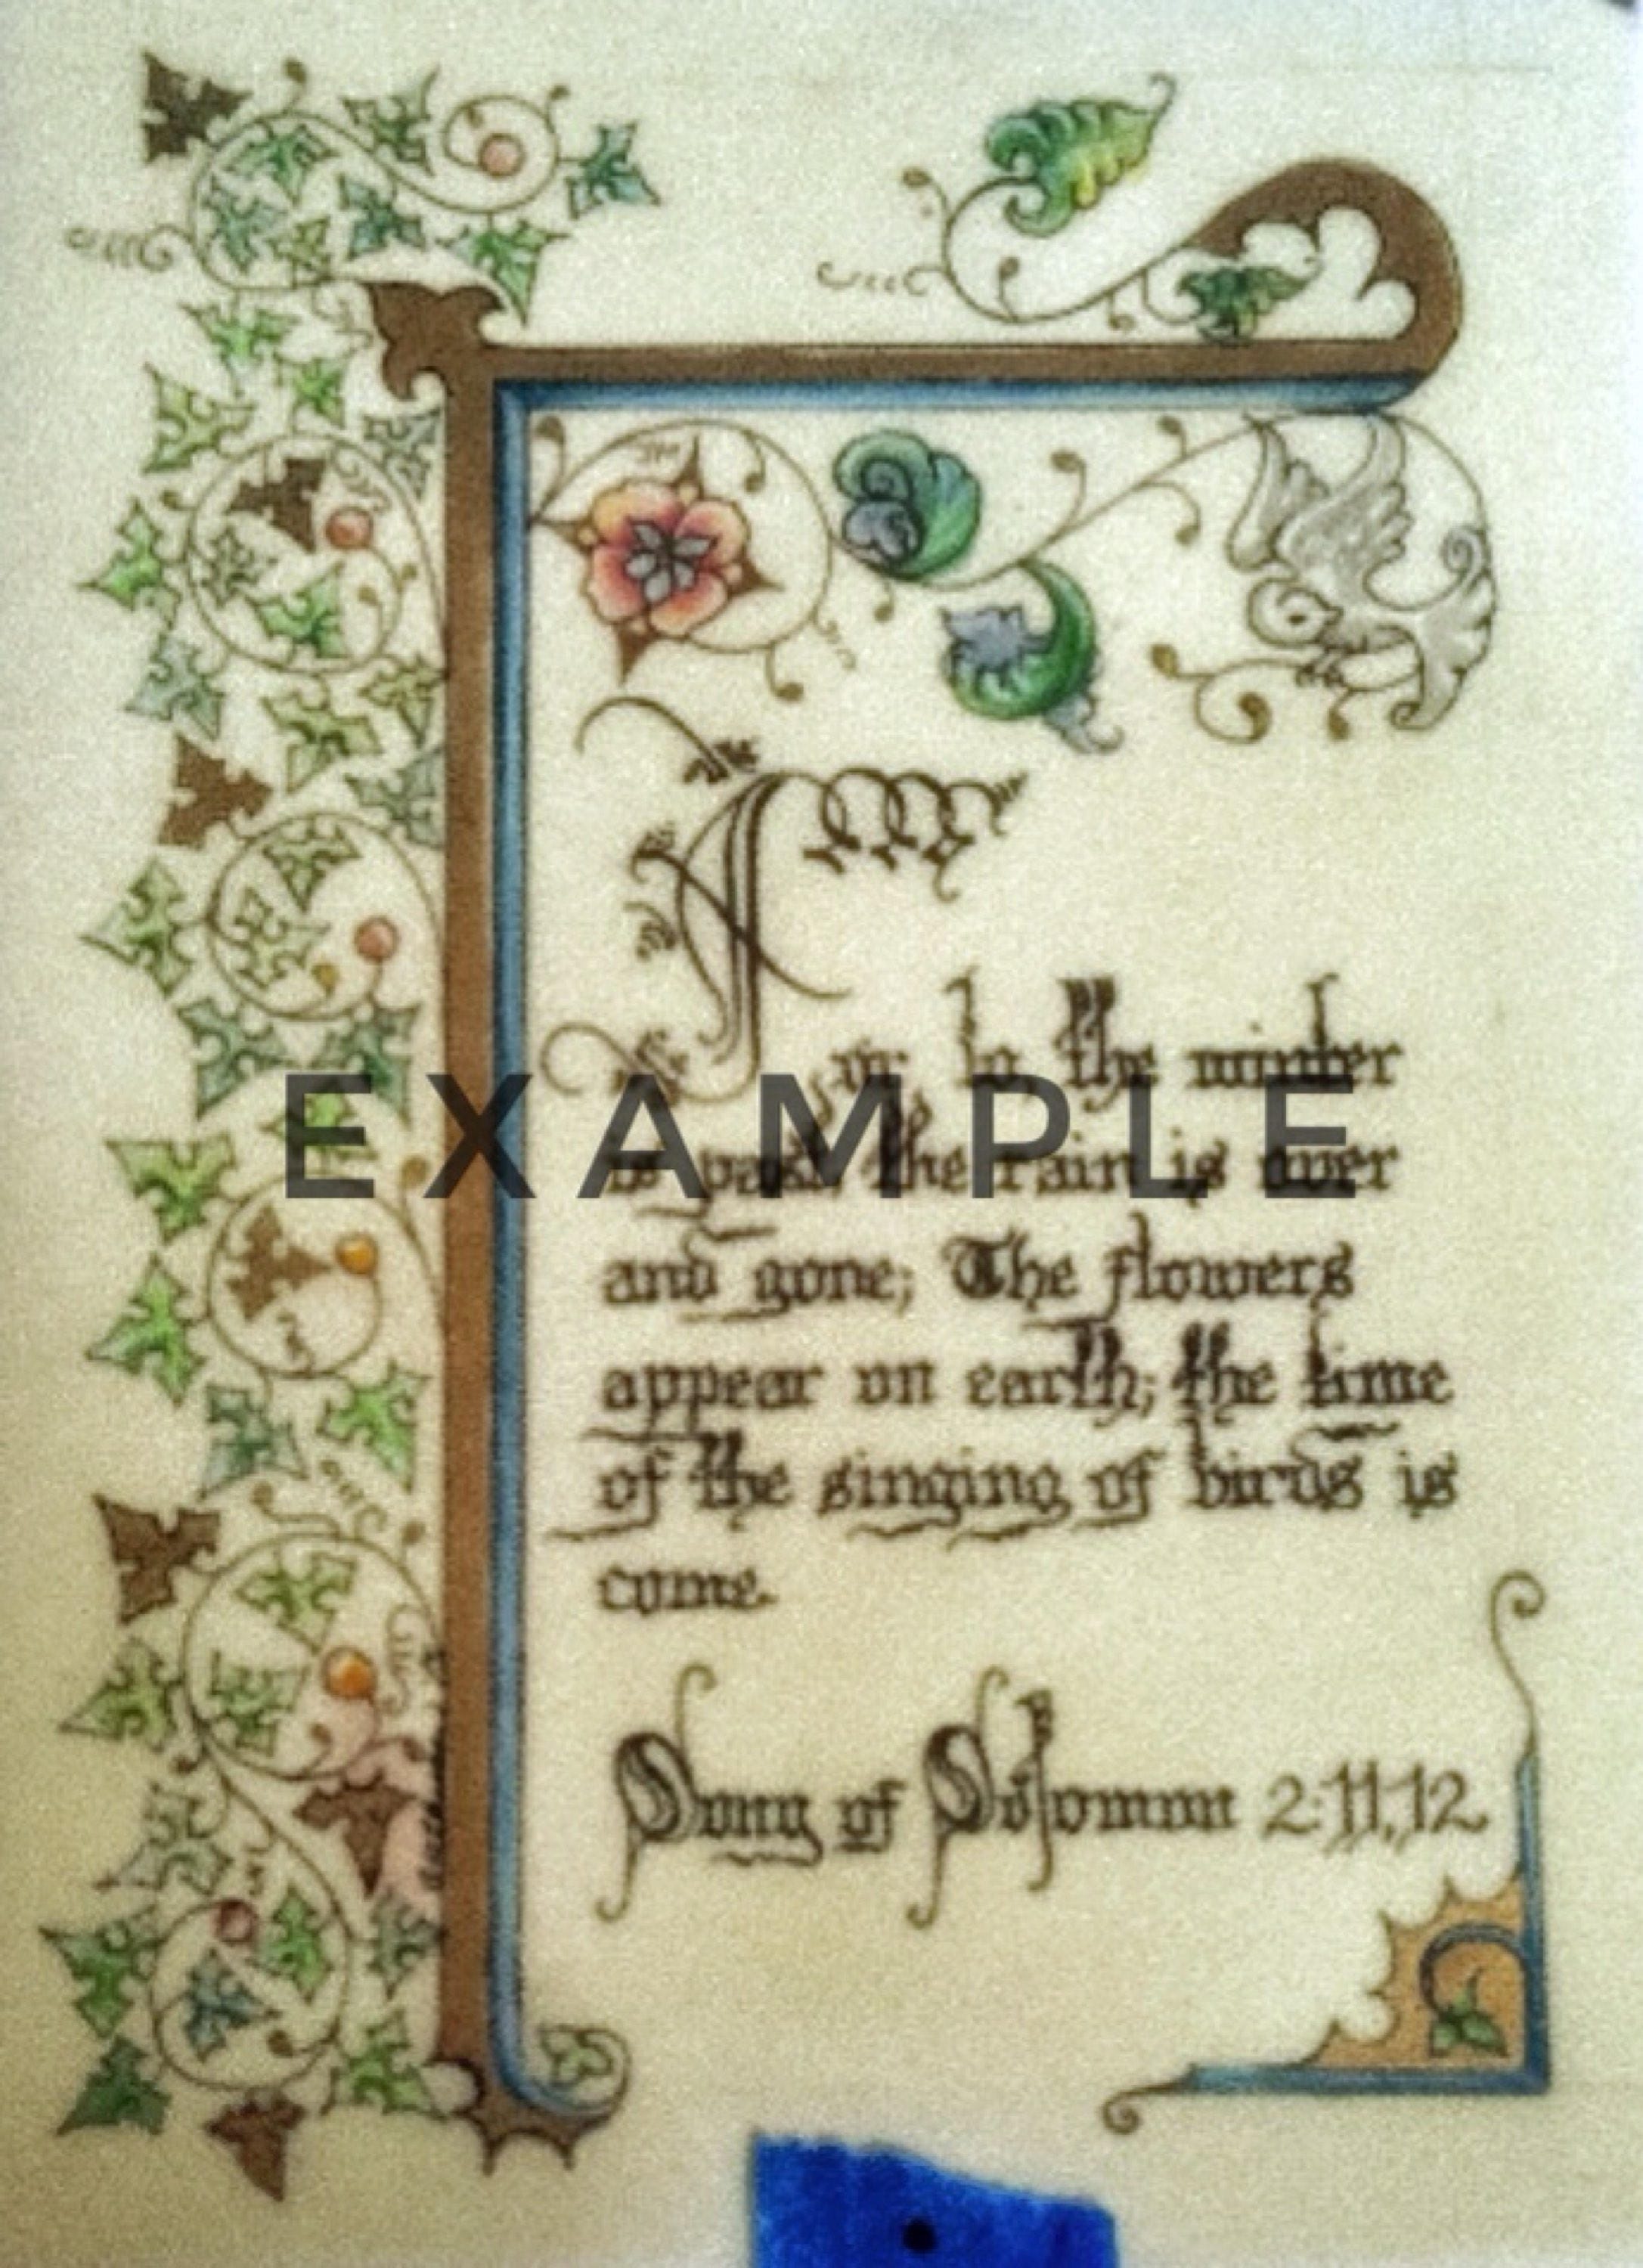 For, lo, the winter
is past, the rain is over
and gone; The flowers
appear on earth; the time
of the singing of birds is
come.
Song of Solomon 2:11,12
EXAMPLE